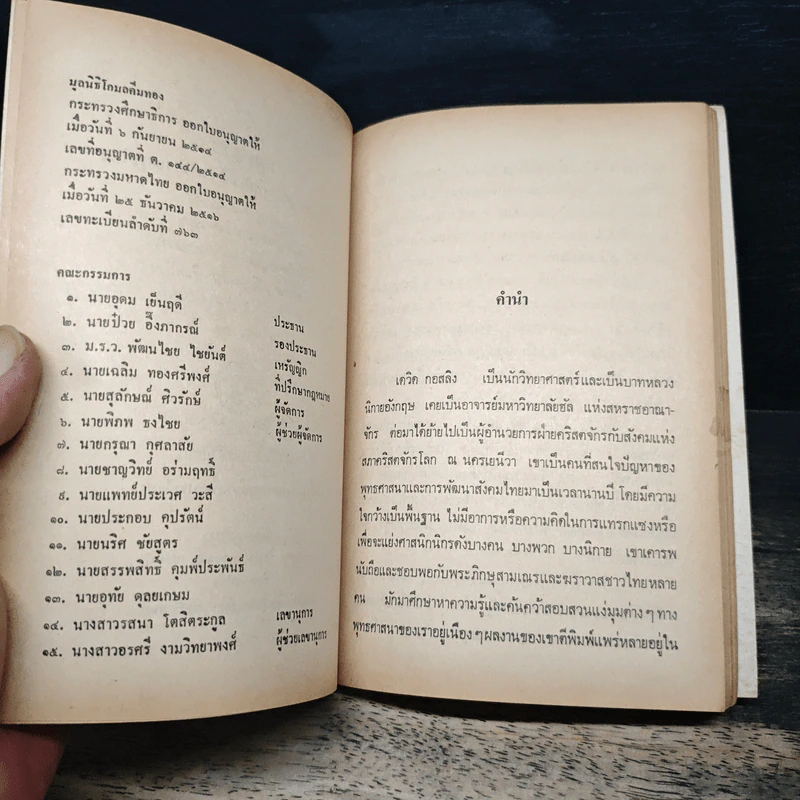 มูลนิธิโกมลคีมทอง
กระทรวงศึกษาธิการ ออกใบอนุญาตให้
เมื่อวันที่ ๖ กันยายน ๒๕๑๔
เลขที่อนุญาตที่ ต. ๑๔๔/๒๕๑๔
กระทรวงมหาดไทย ออกใบอนุญาตให้
เมื่อวันที่ ๒๕ ธันวาคม ๒๕๑๖
เลขทะเบียนลำดับที่ ๗๖๓
คณะกรรมการ
๑. นายอุดม เย็นฤดี ประธาน
๒. นายป๋วย อึ๊งภากรณ์ รองประธาน
๓. ม.ร.ว. พัฒนไชย ไชยันต์ เหรัญญิก
๔. นายเฉลิม ทองศรีพงศ์ ที่ปรึกษากฎหมาย
๕. นายสุลักษณ์ ศิวรักษ์ ผู้จัดการ
๖. นายพิภพ ธงไชย ผู้ช่วยผู้จัดการ
๗. นายกรุณา กุศลาสัย
๘. นายชาญวิทย์ อร่ามฤทธิ์
๙. นายแพทย์ประเวศ วะสี
๑๐. นายประกอบ คุปรัตน์
๑๑. นายนริศ ชัยสูตร
๑๒. นายสรรพสิทธิ์ คุมพ์ประพันธ์
๑๓. นายอุทัย ดุลยเกษม
๑๔. นางสาวรสนา โตสิตระกูล เลขานุการ
๑๕. นางสาวอรศรี งามวิทยาพงศ์ ผู้ช่วยเลขานุการ
คำนำ
เดวิด กอสลิง เป็นนักวิทยาศาสตร์และเป็นบาทหลวง
นิกายอังกฤษ เคยเป็นอาจารย์มหาวิทยาลัยฮัล แห่งสหราชอาณา-
จักร ต่อมาได้ย้ายไปเป็นผู้อำนวยการฝ่ายคริสตจักรกับสังคมแห่ง
สภาคริสตจักรโลก ณ นครเยนีวา เขาเป็นคนที่สนใจปัญหาของ
พุทธศาสนาและการพัฒนาสังคมไทยมาเป็นเวลานานปี โดยมีความ
ใจกว้างเป็นพื้นฐาน ไม่มีอาการหรือความคิดในการแทรกแซงหรือ
เพื่อจะแย่งศาสนิกนิกรดังบางคน บางพวก บางนิกาย เขาเคารพ
นับถือและชอบพอกับพระภิกษุสามเณรและฆราวาสชาวไทยหลาย
คน มักมาศึกษาหาความรู้และค้นคว้าสอบสวนแง่มุมต่าง ๆ ทาง
พุทธศาสนาของเราอยู่เนือง ๆ ผลงานของเขาตีพิมพ์แพร่หลายอยู่ใน